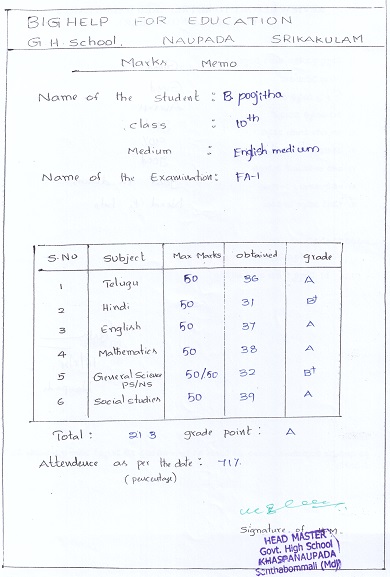 BIG HELP FOR EDUCATION
G H School, NAUPADA SRIKAKULAM
Marks Memo
Name of the Student : B. poojitha
class : 10th
Medium : English medium
Name of the Examination: FA-1
S.No Subject Max Marks obtained grade
1 Telugu 50 36 A
2 Hindi 50 31 B+
3 English 50 37 A
4 Mathematics 50 38 A
5 General Science PS/NS 50/50 32 B+
6 Social studies 50 39 A
Total : 213 grade point : A
Attendence as per the date : 71%
(percentage)
Signature of H.M.
HEAD MASTER
Govt. High School
KHASPANAUPADA
Santhabommali (Mdl)